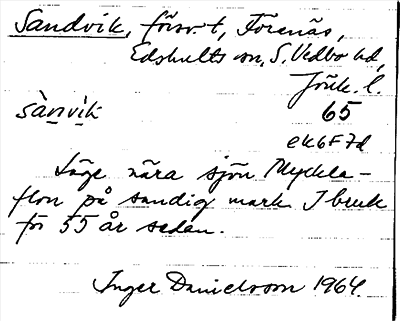 Sandvik, försv. t, Törenäs,
Edshults sn, S. Vedbo hd,
Jönk. l.
sàṇvìk 65
ek6F7d
Läge nära sjön Myckla-
flon på sandig mark. I bruk
för 55 år sedan.
Inger Danielsson 1964.